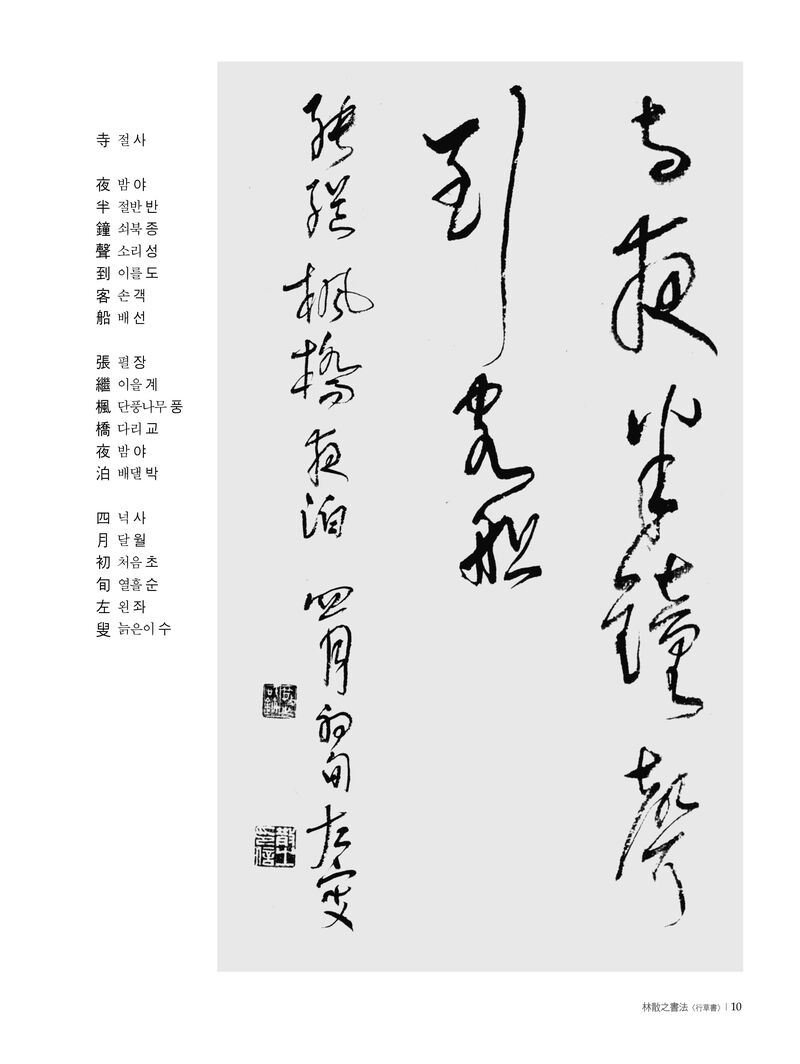 寺 절 사
夜 밤 야
半 절반 반
鐘 쇠북 종
聲 소리 성
到 이를 도
客 손 객
船 배 선
張 펼 장
繼 이을 계
楓 단풍나무 풍
橋 다리 교
夜 밤 야
泊 배댈 박
四 넉 사
月 달 월
初 처음 초
旬 열흘 순
左 왼 좌
叟 늙은이 수
寺夜半鐘聲
到客船
張繼楓橋夜泊 四月初旬左叟
林散之書法〈行草書〉 | 10